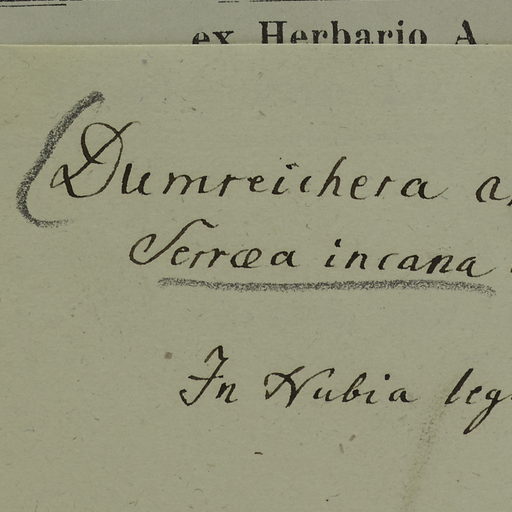 ex Herbario A.
Dumreichera a
Serræa incana
In Nubia leg